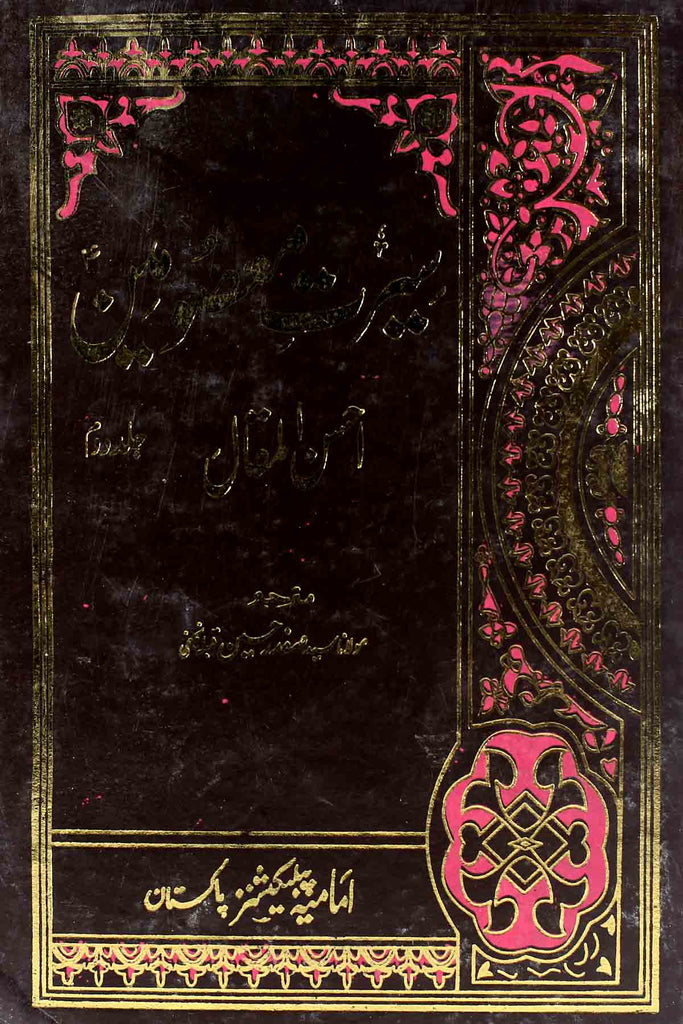 سیرت معصومینؑ
احسن المقال
جلد دوم
مترجم
مولانا سید صفدر حسین نجفی
امامیہ پبلیکیشنز پاکستان